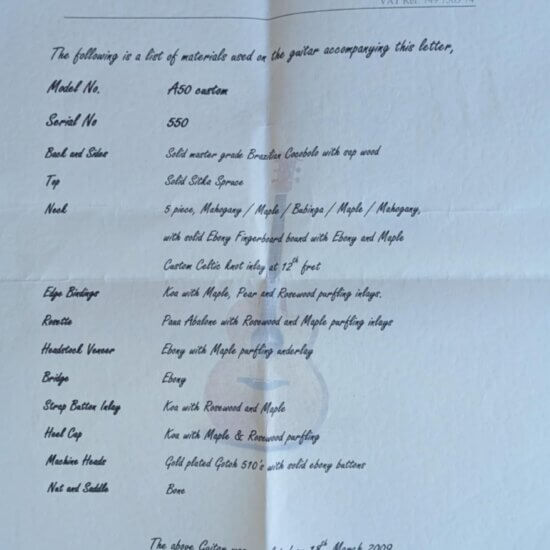 VAT Ref
The following is a list of materials used on the guitar accompanying this letter,
Model No. A50 custom
Serial No 550
Back and Sides Solid master grade Brazilian Cocobolo with sap wood
Top Solid Sitka Spruce
Neck 5 piece, Mahogany / Maple / Bubinga / Maple / Mahogany,
with solid Ebony Fingerboard bound with Ebony and Maple
Custom Celtic knot inlay at 12th fret
Edge Bindings Koa with Maple, Pear and Rosewood purfling inlays.
Rosette Paua Abalone with Rosewood and Maple purfling inlays
Headstock Veneer Ebony with Maple purfling underlay
Bridge Ebony
Strap Button Inlay Koa with Rosewood and Maple
Heel Cap Koa with Maple & Rosewood purfling
Machine Heads Gold plated Gotoh 510's with solid ebony buttons
Nut and Saddle Bone
The above Guitar 18th March 2009